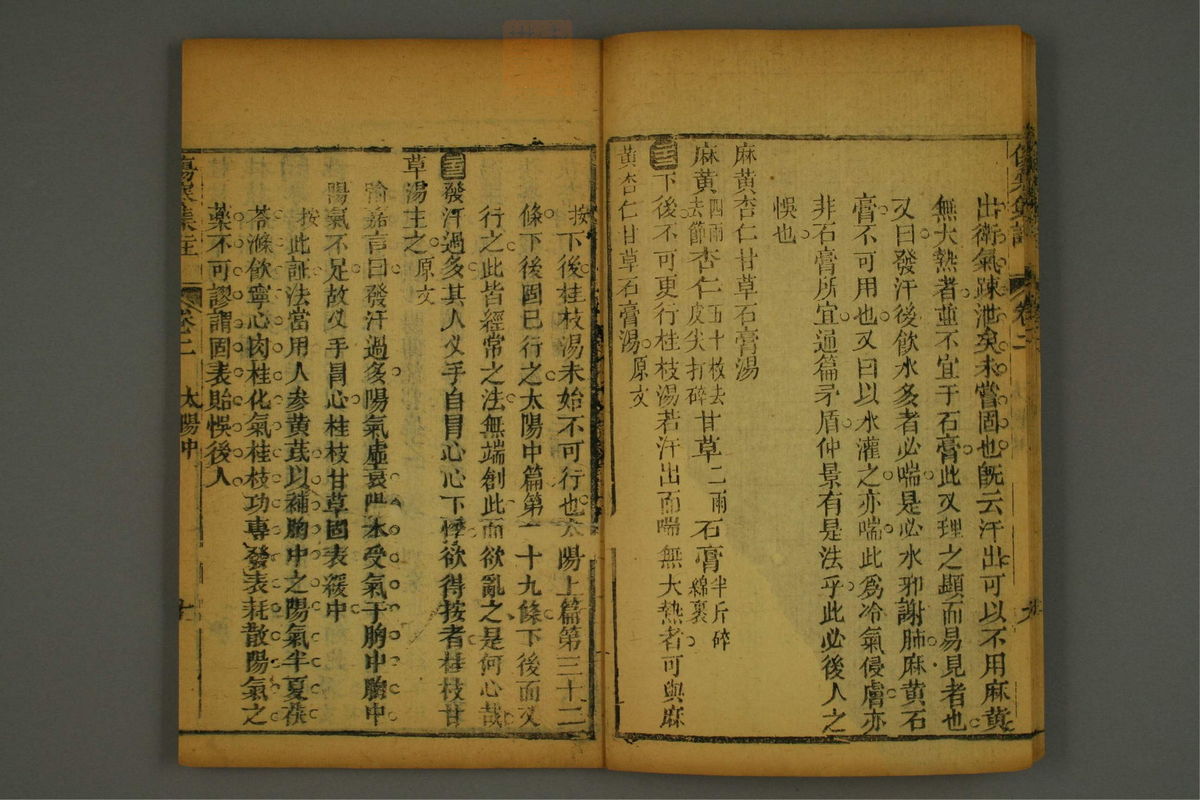 出衛氣疎泄矣未嘗固也旣云汗出可以不用麻黃
無大熱者並不宜于石膏此又理之顯而易見者也
又曰發汗後飮水多者必喘是必水邪謝肺麻黃石
膏不可用也又曰以水灌之亦喘此爲冷氣侵膚亦
非石膏所宜通篇矛盾仲景有是法乎此必後人之
悞也
麻黃杏仁甘草石膏湯
麻黃四兩去節杏仁五十枚去皮尖打碎甘草二兩石膏半斤碎綿裹
下後不可更行桂枝湯若汗出而喘無大熱者可與麻
黃杏仁甘草石膏湯原文
按下後桂枝湯未始不可行也太陽上篇第三十二
條下後固已行之太陽中篇第一十九條下後面又
行之此皆經常之法無端創此而欲亂之是何心哉
發汗過多其人叉手自冒心心下悸欲得按者桂枝甘
草湯主之原文
喻嘉言曰發汗過多陽氣虛衰陽本受氣于胸中胸中
陽氣不足故叉手冒心桂枝甘草固表緩中
按此証法當用人参黃芪以補胸中之陽氣半夏茯
苓滌飮寧心肉桂化氣桂枝功專發表耗散陽氣之
藥不可謬謂固表貽悞後人
傷寒集註 卷二 太陽中